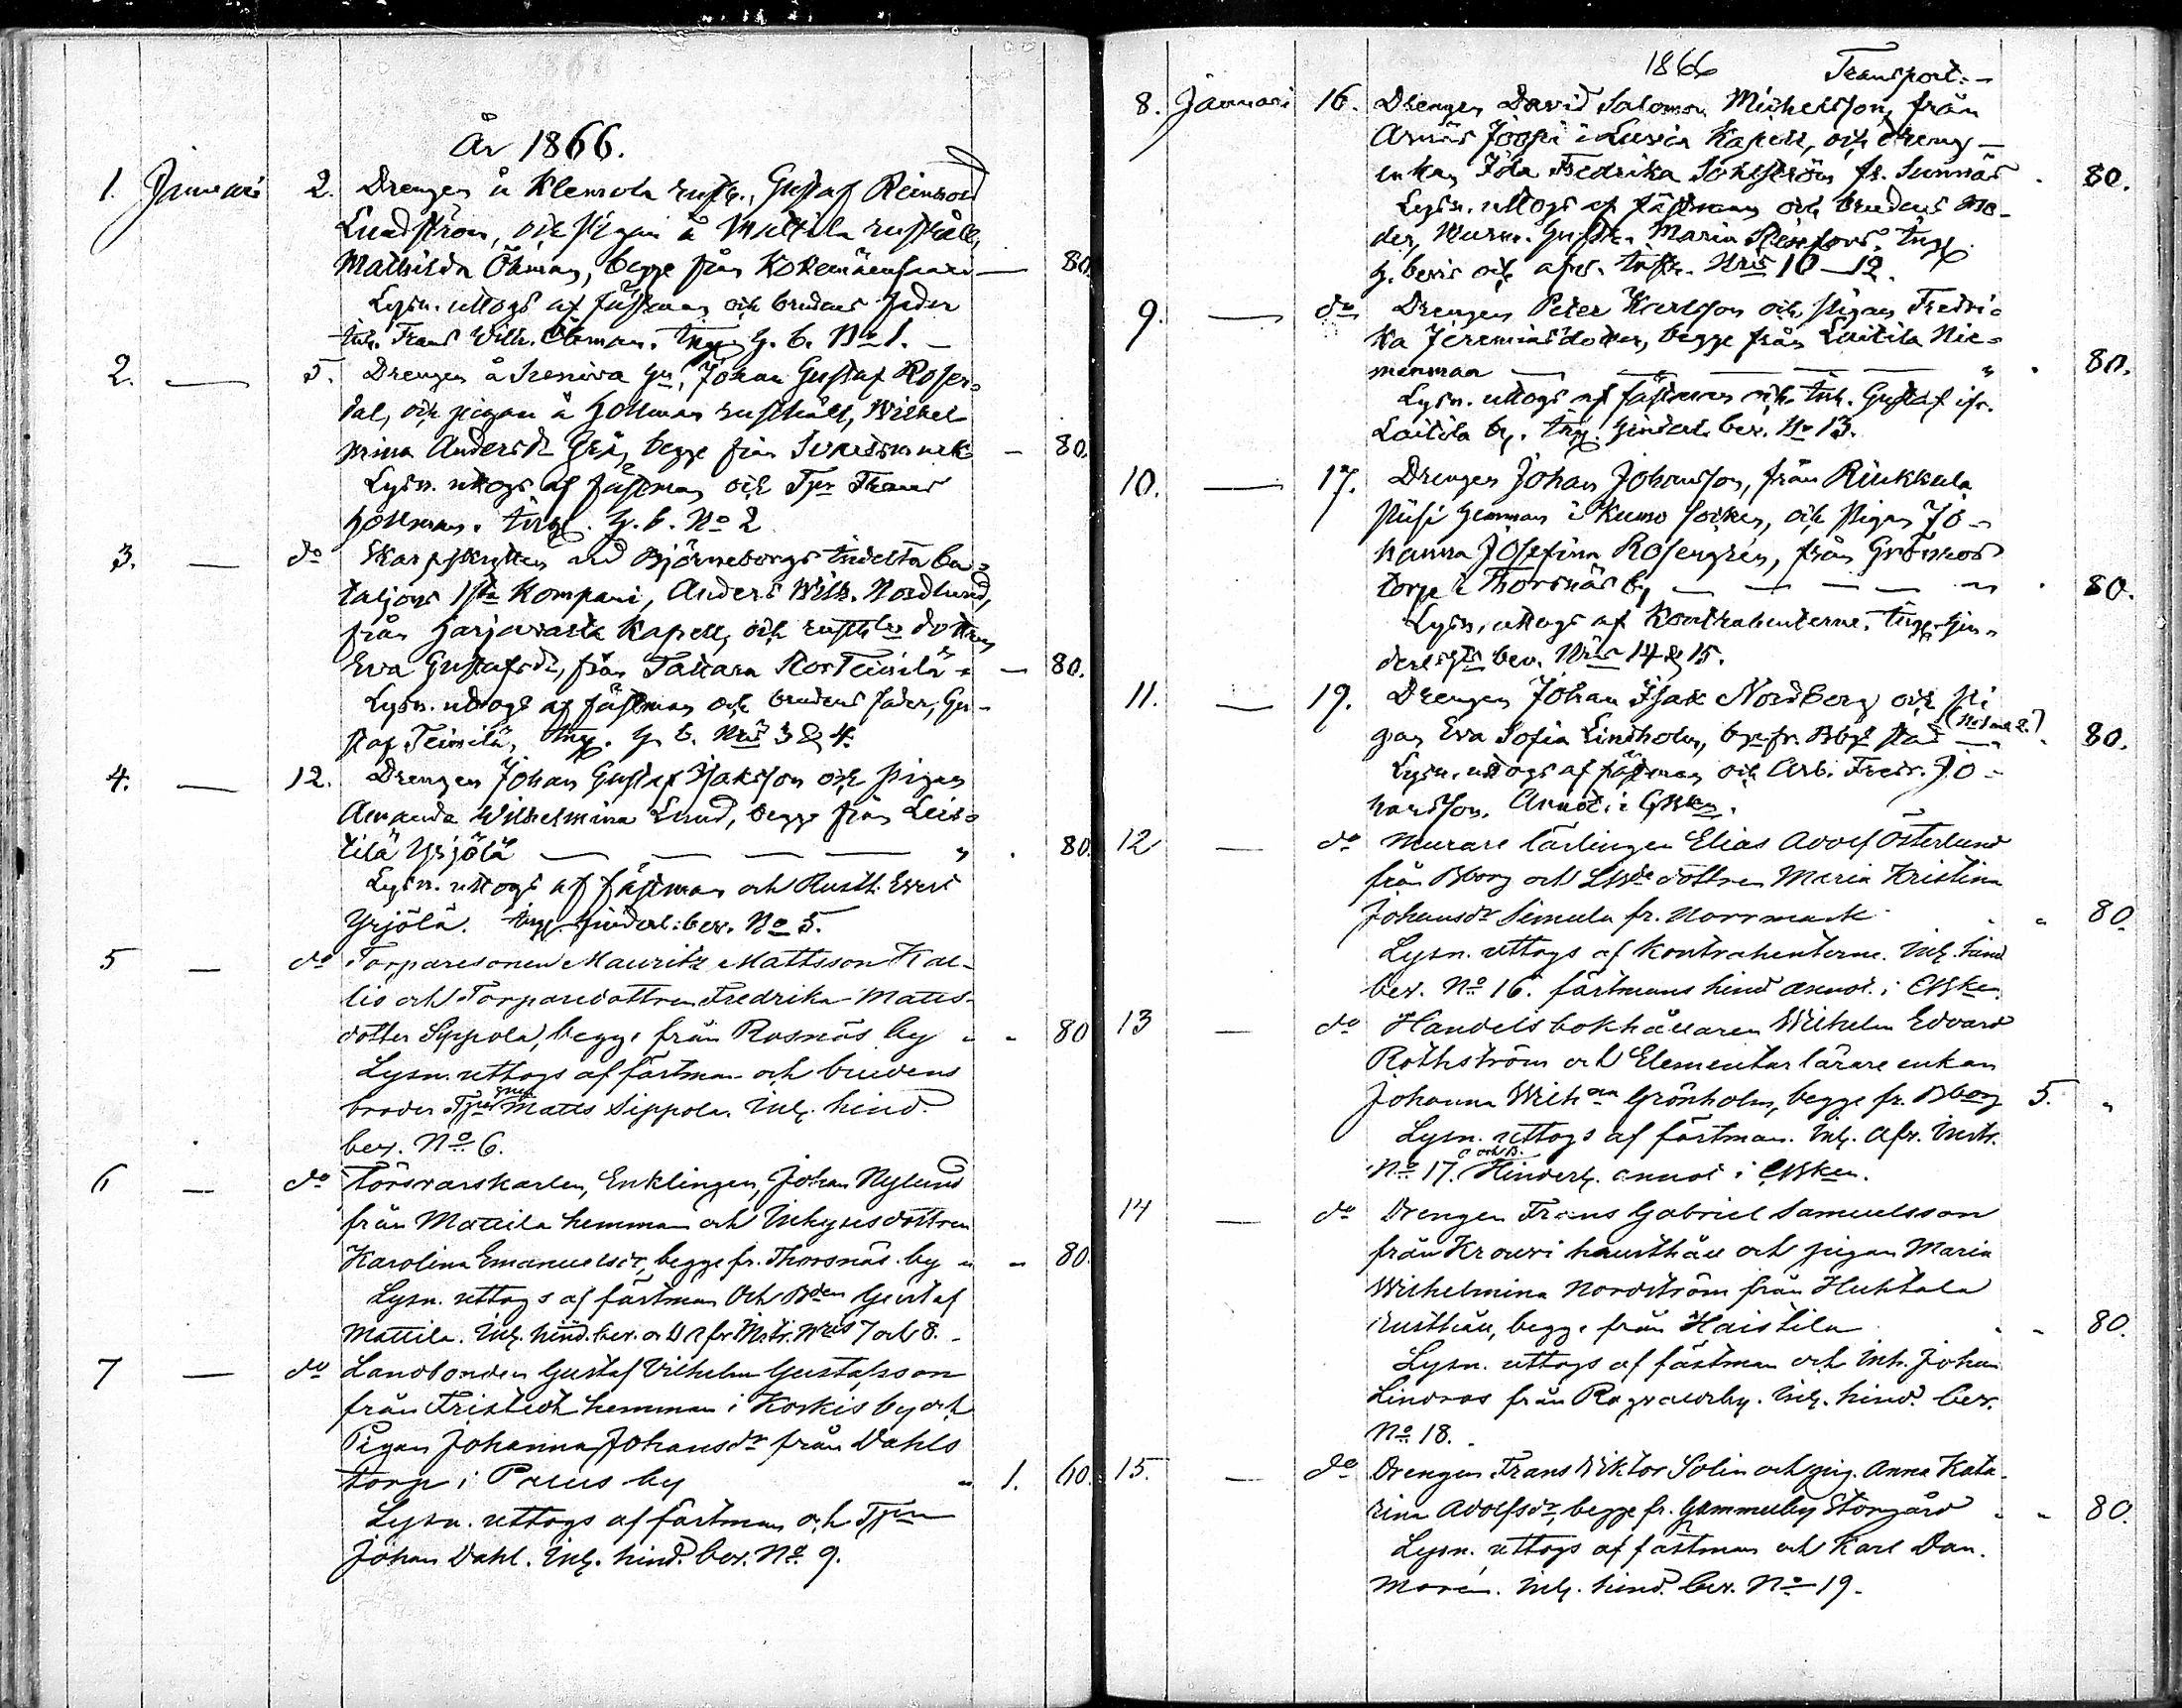 År 1866.
1. Januari 2. Drengen å Klemola rusth., Gustaf Reinhold
Lundström, och pigan å Mattila rusthåll,
Mathilda Öhman, begge från Kokemäensaari — 80.
Lysn. uttogs af fästman och brudens fader
Inh. Frans Wilh. Öhman. Ing. H. b. No 1. —
2. — 5. Drengen å Gn, Johan Gustaf Rosen-
dal, och pigan å Hollman rusthåll, Wilhel
mina Andersdr begge från Svartsmark — 80.
Lysn. uttogs af fästman och Tpr Frans
Hollman. Ing. H. b. No 2
3. — do Skarpskytten vid Björneborgs Indelta ba-
taljons 1sta Kompani, Anders Wilh. Nordlund,
från Harjavalta Kapell, och dottren
Eva Gustafsdr, från Tattara Stor Teinilä — 80.
Lysn. uttogs af fästman och brudens fader, Gu-
staf Teinilä, Ing. H. b. Nris 3 & 4.
4. — 12. Drengen Johan Gustaf Isaksson och pigan
Amanda Wilhelmina Lund, begge från Leis-
tilä Yrjölä — — — — „ . 80.
Lysn. uttogs af fästman och Rusth. Evert
Yrjölä. Ing. hinderl: bev. No 5.
5 — do Torparesonen Mauritz Mattsson Kal-
lio och Torparedottren Fredrika Matts-
dotter Sippola, begge från Rosnäs by „ „ 80
Lysn. uttogs af fästman och brudens
broder Matts Sippola. Inlg. hind.
bev. No 6.
6 — do Försvarskarlen, Enklingen, Johan Nylund
från Mattila hemman och Inhysesdottren
Karolina Emanuelsdr, begge fr. Thorsnäs by „ „ 80.
Lysn. uttogs af fästman Och Bden Gustaf
Mattila. Inlg. hind. bev. o Nris 7 och 8.
7 — do Landbonden Gustaf Vilhelm Gustafsson
från Fristedt hemman i Koskis by och
Pigan Johanna Johansdr från Dahls
torp i Paus by „ 1. 60.
Lysn. uttogs af fästman och Tpn
Johan Dahl. Inlg. hind. bev. No 9.
1866 Transport: —
8. Januari 16. Drengen David Salomon Michelsson, från
Arnäs Jooppi i Luvia Kapell, och dreng-
enkan Ida Fredrika Sohlström fr. Sunnäs . 80.
Lysn. uttogs af fästman och brudens mo-
der, Maria Ing.
h. bevis och afvr. Nris 10—12.
9. — do Drengen Peter Karlsson och pigan Fredri-
ka Jeremiasdotter, begge från Laitila Nie-
menmaa — — — — „ . 80.
Lysn. uttogs af fästman och Inh. Gustaf
Laitila by. Ing. hinderl. bev. No 13.
10. — 17. Drengen Johan Johansson, från Rinkkala
hemman i Kumo socken, och pigan Jo-
hanna Josefina Rosengrén, från Grönroos
torp i Thorsnäs by — — — — . 80.
Lysn. uttogs af Kontrahenterne. Ing. hin-
bev. Nris 14 & 15.
11. — 19. Drengen Johan Isak Nordberg och pi
gan Eva Sofia Lindholm, bge fr. Bbgs stad — . 80.
Lysn. uttogs af fästman och Arb. Fredr. Jo-
hansson. Annot. i
12 — do Murare lärlingen Elias Adolf Österlund
från Bborg och dottren Maria Kristina
Johansdr Simula fr. Norrmark „ „ 80.
Lysn. uttogs af Kontrahenterne. Inlg. hind
bev. No 16. fästmans hind annot. i
13 — do Handelsbokhållaren Wilhelm Edvard
Rothström och Elementar lärare enkan
Johanna Wilhna Grönholm, begge fr. Bborg 5. „
Lysn. uttogs af fästman. Inlg. afvr. instr.
No 17. a och b. Hinderl. annot i
14 — do Drengen Frans Gabriel Samuelsson
från Krouvi rusthåll och pigan Maria
Wilhelmina Nordström från Huhtala
rusthåll, begge från Haistila „ „ 80.
Lysn. uttogs af fästman och Inh. Johan
Lindroos från Ragvaldsby. Inlg. hind. bev.
No 18.
15. — do Drengen Frans Viktor Solin och pig. Anna Kata-
rina Adolfsdr, begge fr. Gammelby Storgård „ „ 80.
Lysn. uttogs af fästman och Karl Dan.
Morén. Inlg. hind. bev. No 19.